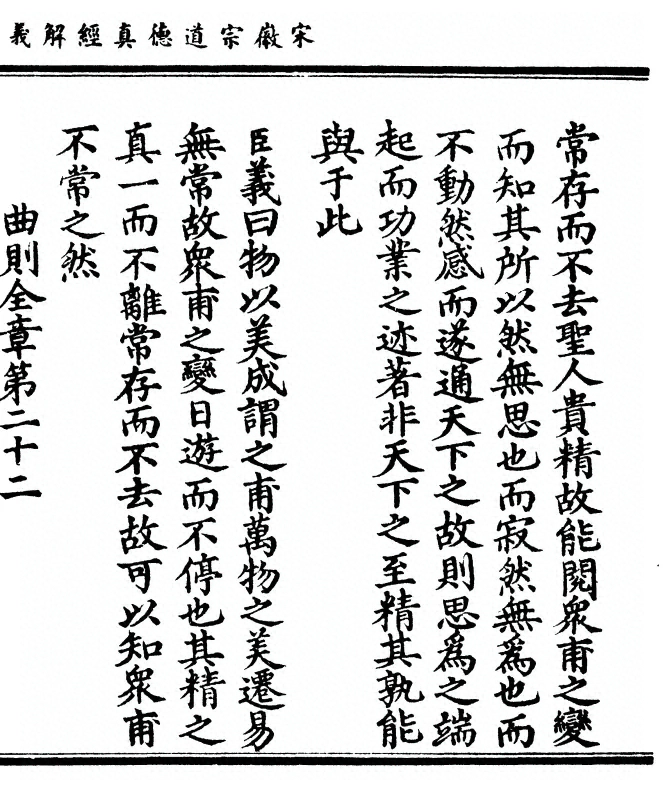 宋徽宗道德真經解義
常存而不去聖人貴精故能閱衆甫之變
而知其所以然無思也而寂然無爲也而
不動然感而遂通天下之故則思爲之端
起而功業之迹著非天下之至精其孰能
與于此
臣義曰物以美成謂之甫萬物之美遷易
無常故衆甫之變日遊而不停也其精之
真一而不離常存而不去故可以知衆甫
不常之然
曲則全章第二十二